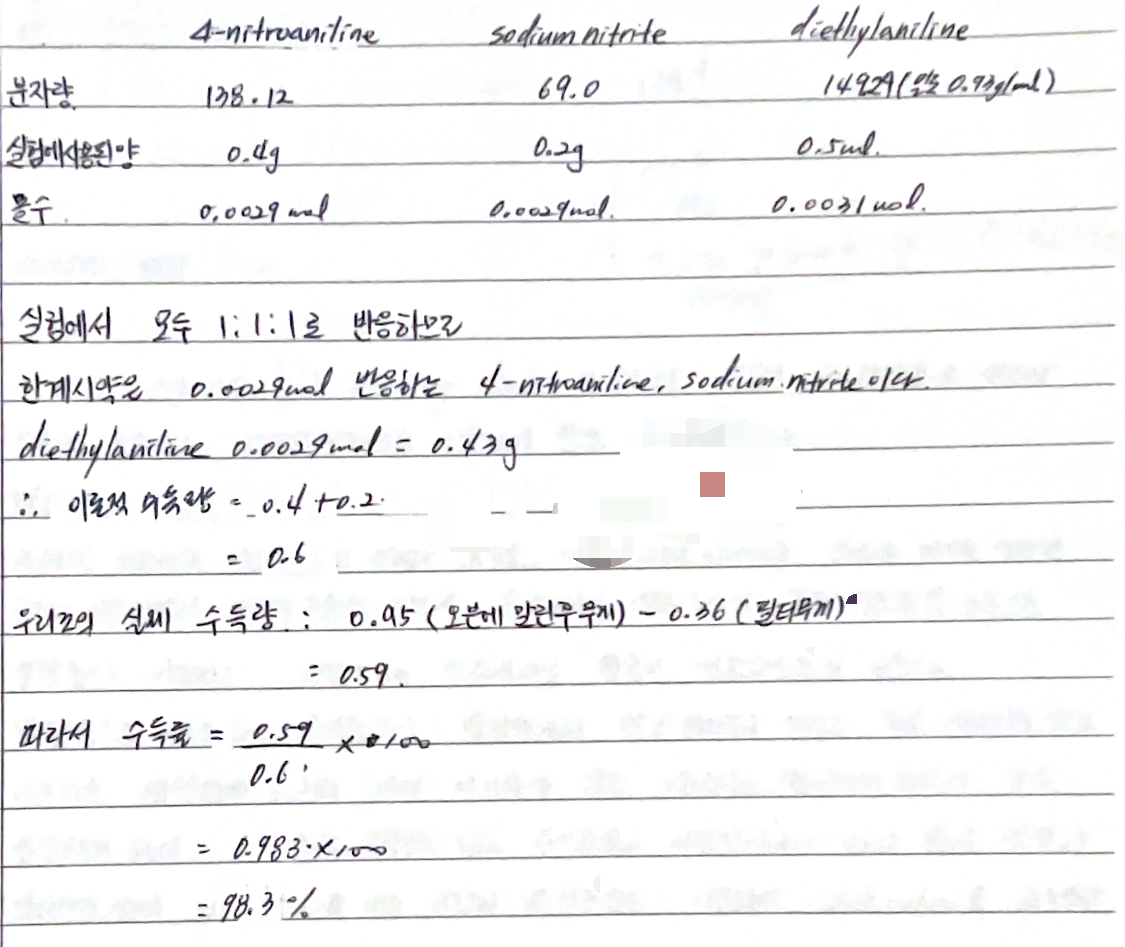 4-nitroaniline sodium nitrite diethylaniline
분자량 138.12 69.0 149.24(밀도 0.93g/ml)
실험에사용된양 0.4g 0.2g 0.5ml.
몰수. 0.0029mol 0.0029mol. 0.0031mol.
실험에서 모두 1:1:1로 반응하므로
한계시약은 0.0029mol 반응하는 4-nitroaniline, sodium nitrite이다.
diethylaniline 0.0029mol = 0.43g
∴ 이론적 수득량 = 0.4+0.2
= 0.6
우리조의 실제 수득량 : 0.95 (오븐에 말린후무게) - 0.36 (필터무게)
= 0.59.
따라서 수득률 = 0.59 × 100
0.6
= 0.983 × 100
= 98.3%